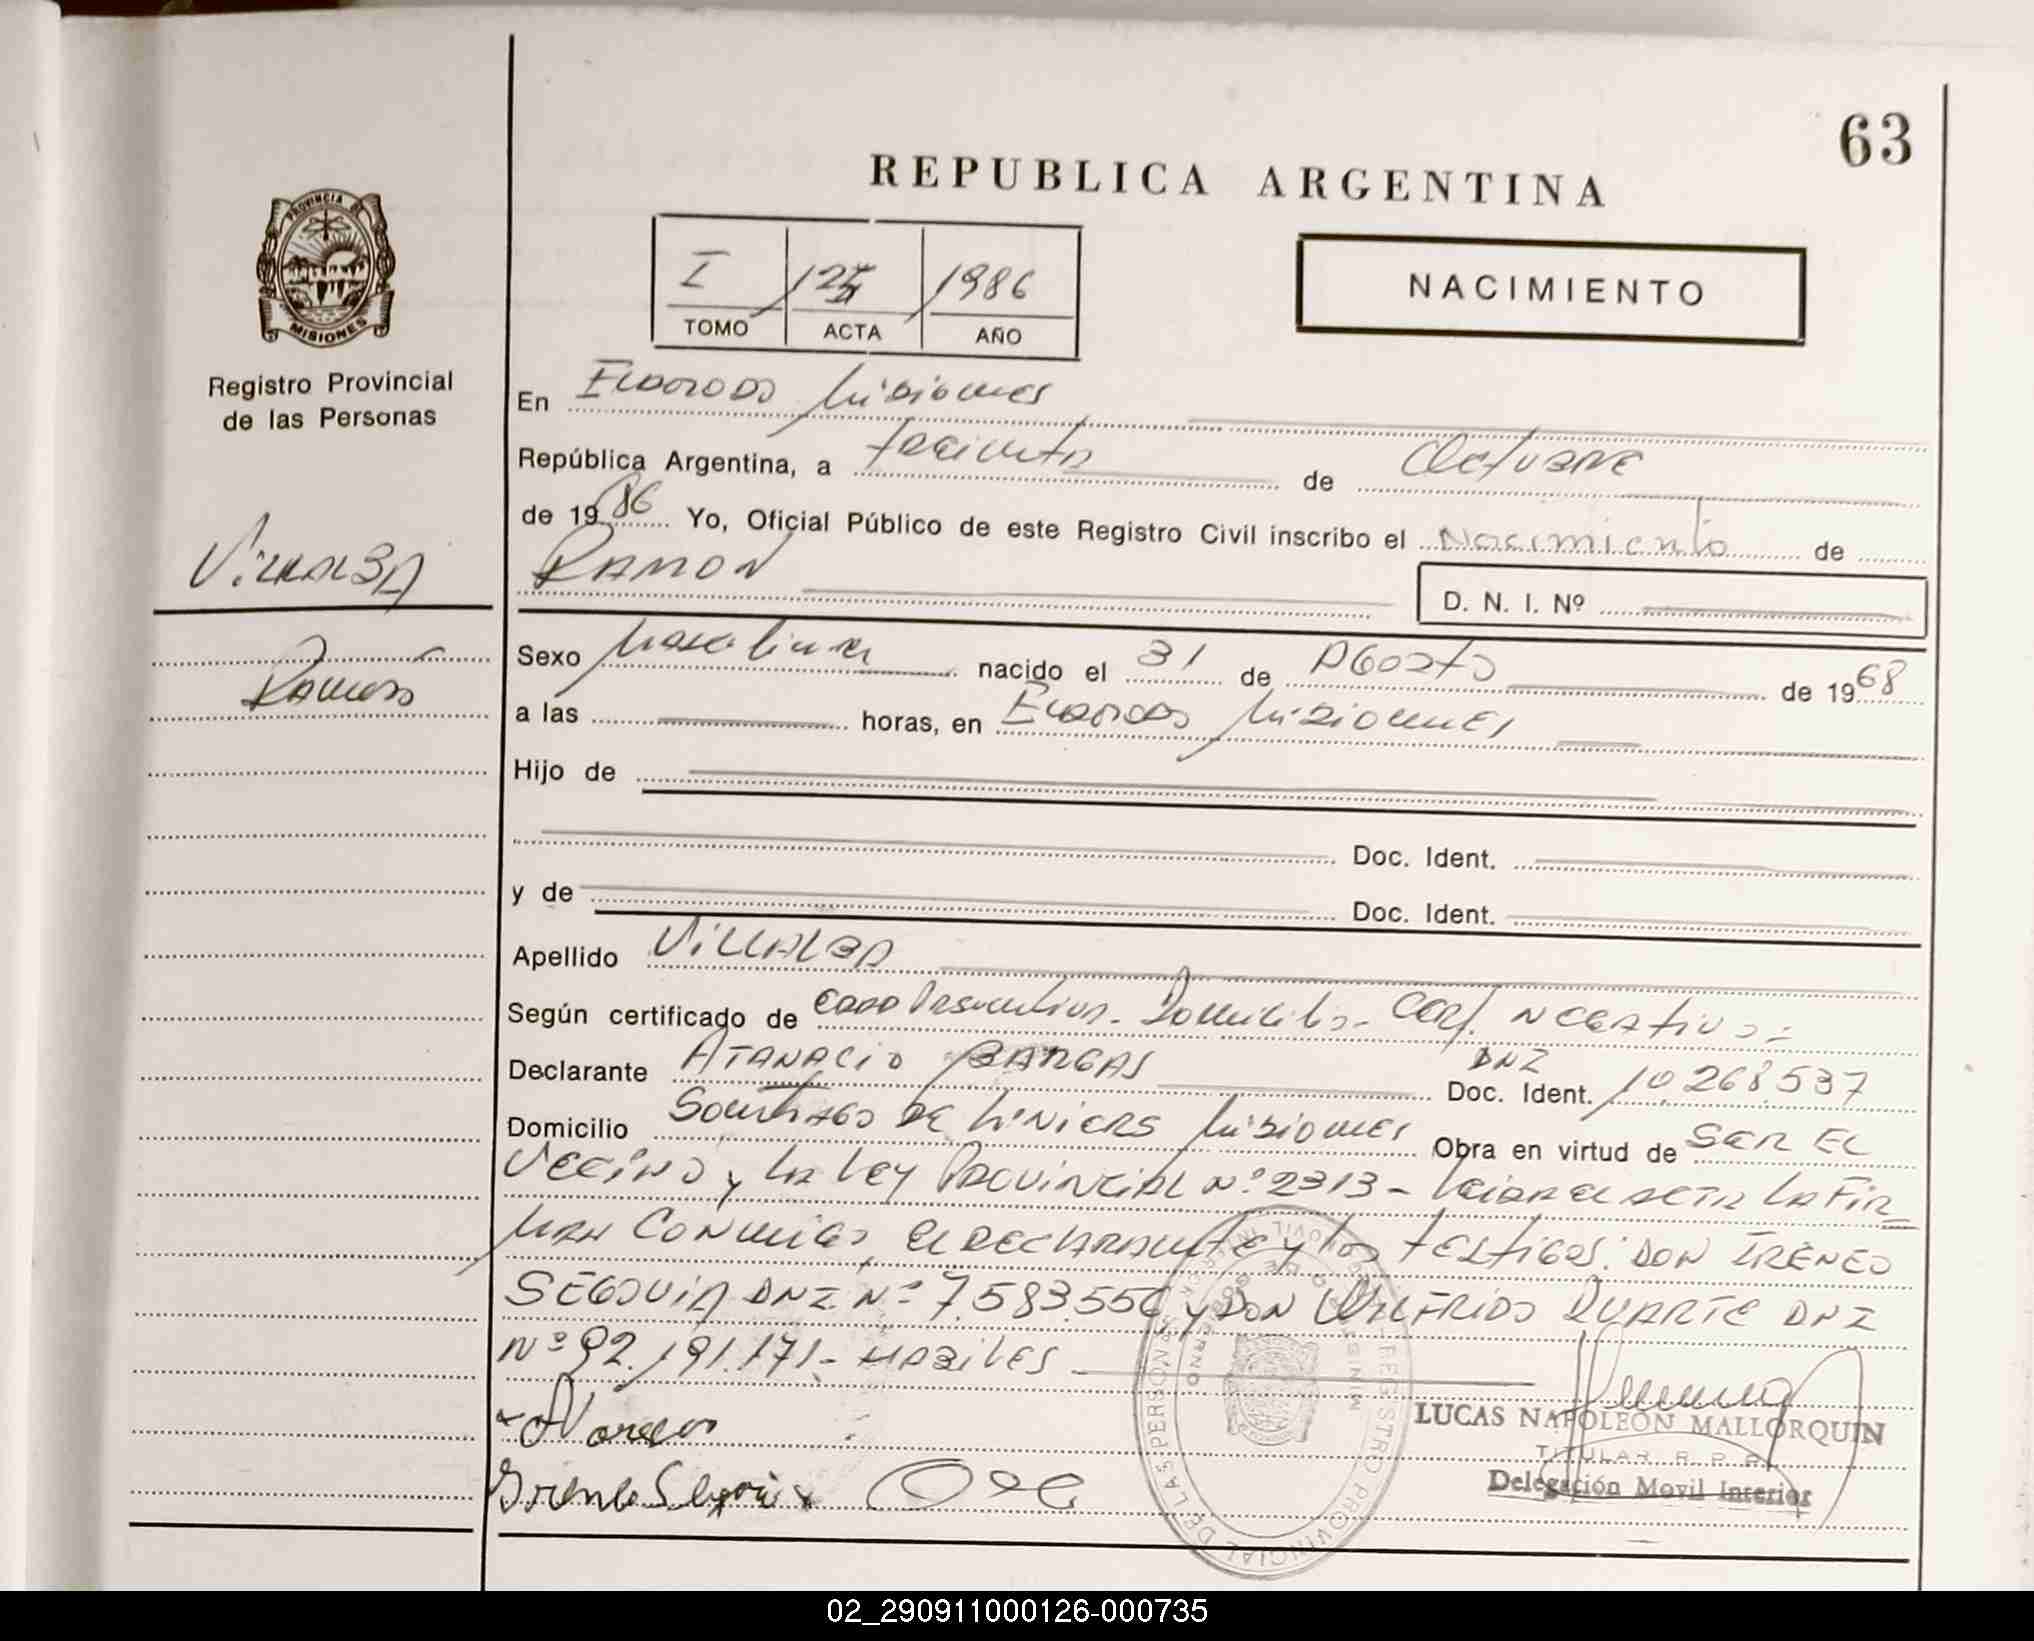 63
REPUBLICA ARGENTINA
I 1986
TOMO ACTA AÑO
NACIMIENTO
PROVINCIA DE
MISIONES
Registro Provincial
de las Personas
En Eldorado Misiones
República Argentina, a treinta de Octubre
de 1986 Yo, Oficial Público de este Registro Civil inscribo el Nacimiento de
Villalba
RAMON
D. N. I. Nº
Ramón
Sexo Masculino nacido el 31 de Agosto de 1968
a las horas, en Eldorado Misiones
Hijo de
Doc. Ident.
y de Doc. Ident.
Apellido VILLALBA
Según certificado de Domicilio - Cert. Negativo.-
Declarante ATANACIO BARGAS DNI Doc. Ident. 10.268.537
Domicilio Santiago de Liniers Misiones Obra en virtud de SER EL
VECINO y LA LEY PROVINCIAL Nº 2313 - Leida el ACTA LA FIR_
MAN CONMIGO, el DECLARANTE y los testigos: DON IRENEO
SEGOVIA DNI Nº 7.583.556 y DON WILFRIDO DUARTE DNI
Nº 92.191.171.- HABILES
LUCAS NAPOLEON MALLORQUIN
TITULAR R.P.P.
Delegación Movil Interior
REGISTRO PROVINCIAL DE LAS PERSONAS
02_290911000126-000735